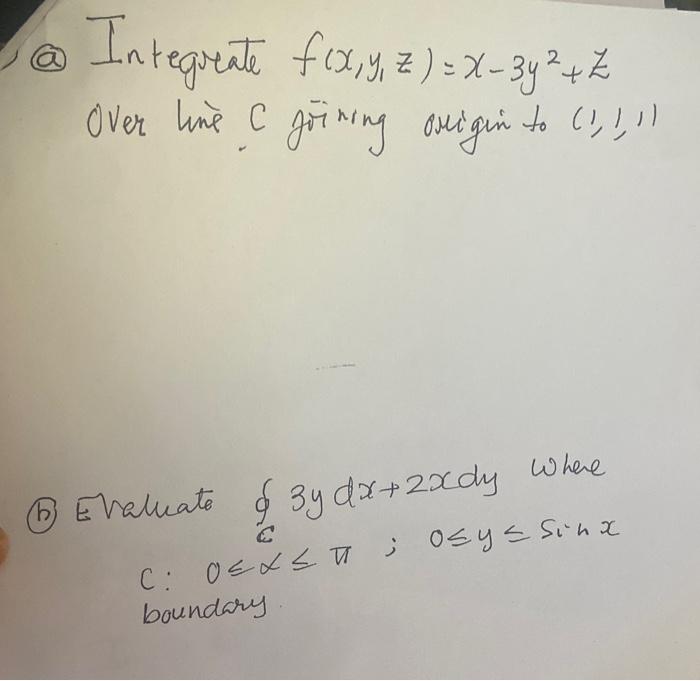 ⓐ Integrate f(x,y,z)=x-3y²+z
Over line C joining origin to (1,1,1)
ⓑ Evaluate ∮ 3y dx+2xdy where
C
C: 0≤x≤π ; 0≤y≤ Sin x
boundary.